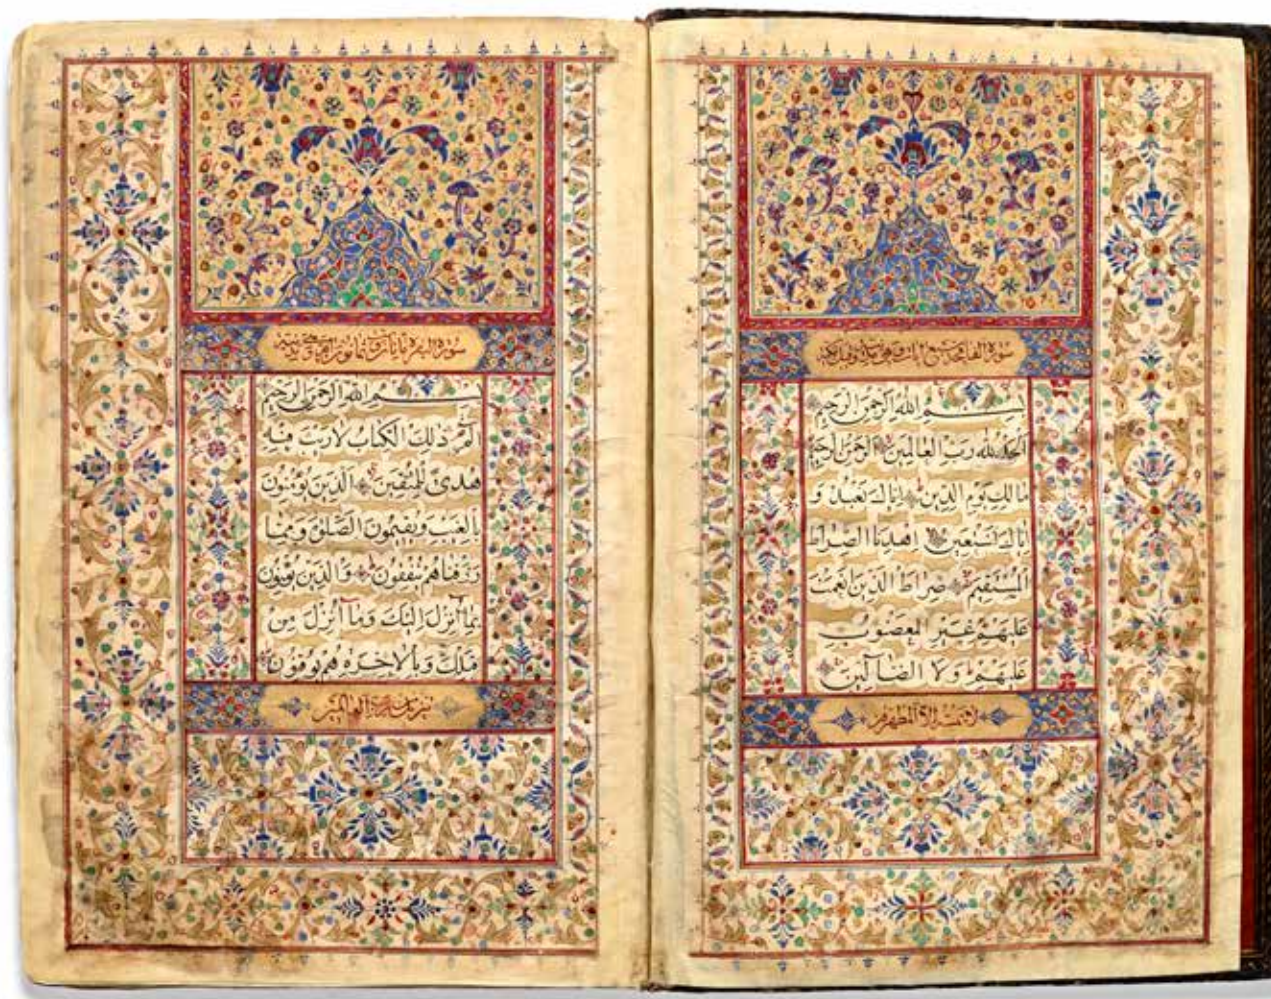 سورة الفاتحه سبع ايات
بِسْمِ اللهِ الرَّحْمٰنِ الرَّحِيمِ
اَلْحَمْدُ لِلّٰهِ رَبِّ الْعَالَمِينَ الرَّحْمٰنِ الرَّحِيمِ
مَالِكِ يَوْمِ الدِّينِ اِيَّاكَ نَعْبُدُ وَ
اِيَّاكَ نَسْتَعِينُ اِهْدِنَا الصِّرَاطَ
الْمُسْتَقِيمَ صِرَاطَ الَّذِينَ اَنْعَمْتَ
عَلَيْهِمْ غَيْرِ الْمَغْضُوبِ
عَلَيْهِمْ وَلَا الضَّآلِّينَ
لا يمسه الا المطهرون
سورة البقره
بِسْمِ اللهِ الرَّحْمٰنِ الرَّحِيمِ
الٓمٓ ذٰلِكَ الْكِتَابُ لَا رَيْبَ فِيهِ
هُدىً لِلْمُتَّقِينَ الَّذِينَ يُؤْمِنُونَ
بِالْغَيْبِ وَيُقِيمُونَ الصَّلٰوةَ وَمِمَّا
رَزَقْنَاهُمْ يُنْفِقُونَ وَالَّذِينَ يُؤْمِنُونَ
بِمَآ اُنْزِلَ اِلَيْكَ وَمَآ اُنْزِلَ مِنْ
قَبْلِكَ وَبِالْاٰخِرَةِ هُمْ يُوقِنُونَ
تنزيل من رب العالمين